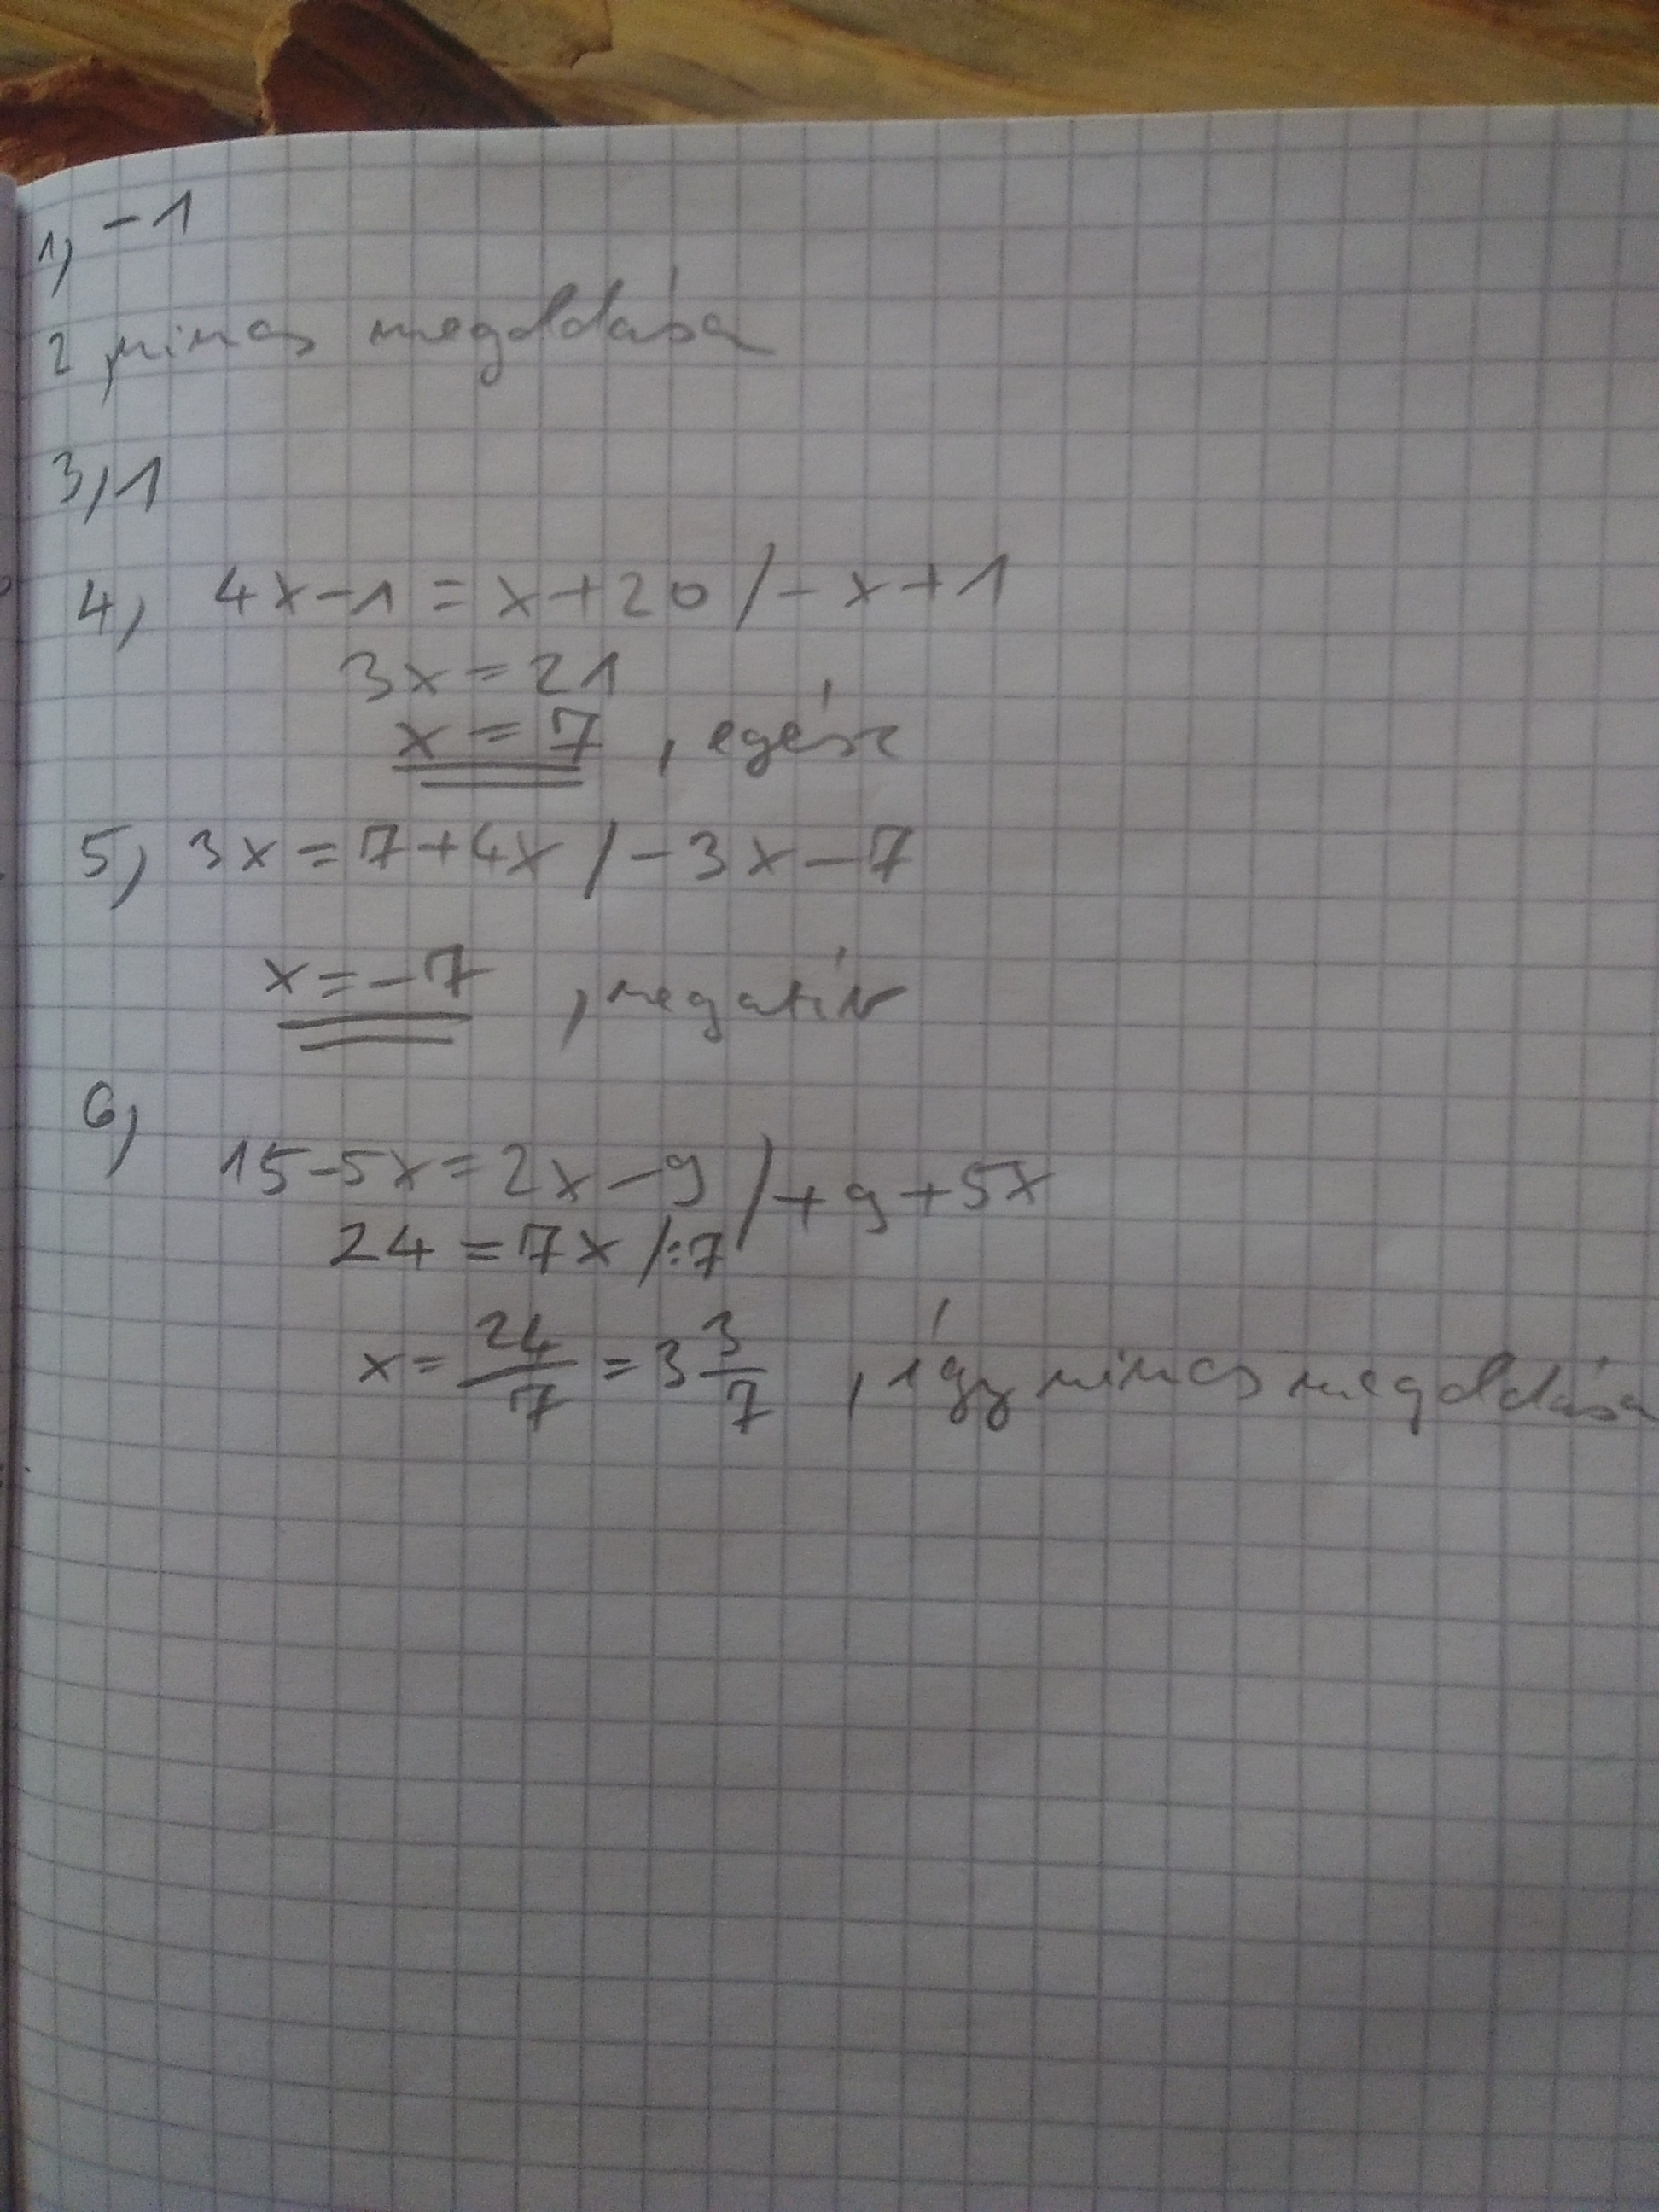 1, -1
2, nincs megoldása
3, 1
4, 4x-1=x+20 /-x+1
3x=21
x=7, egész
5, 3x=7+4x /-3x-7
x=-7, negatív
6,
15-5x=2x-9 /+9+5x
24=7x /:7
x=24/7=3 3/7, így nincs megoldása